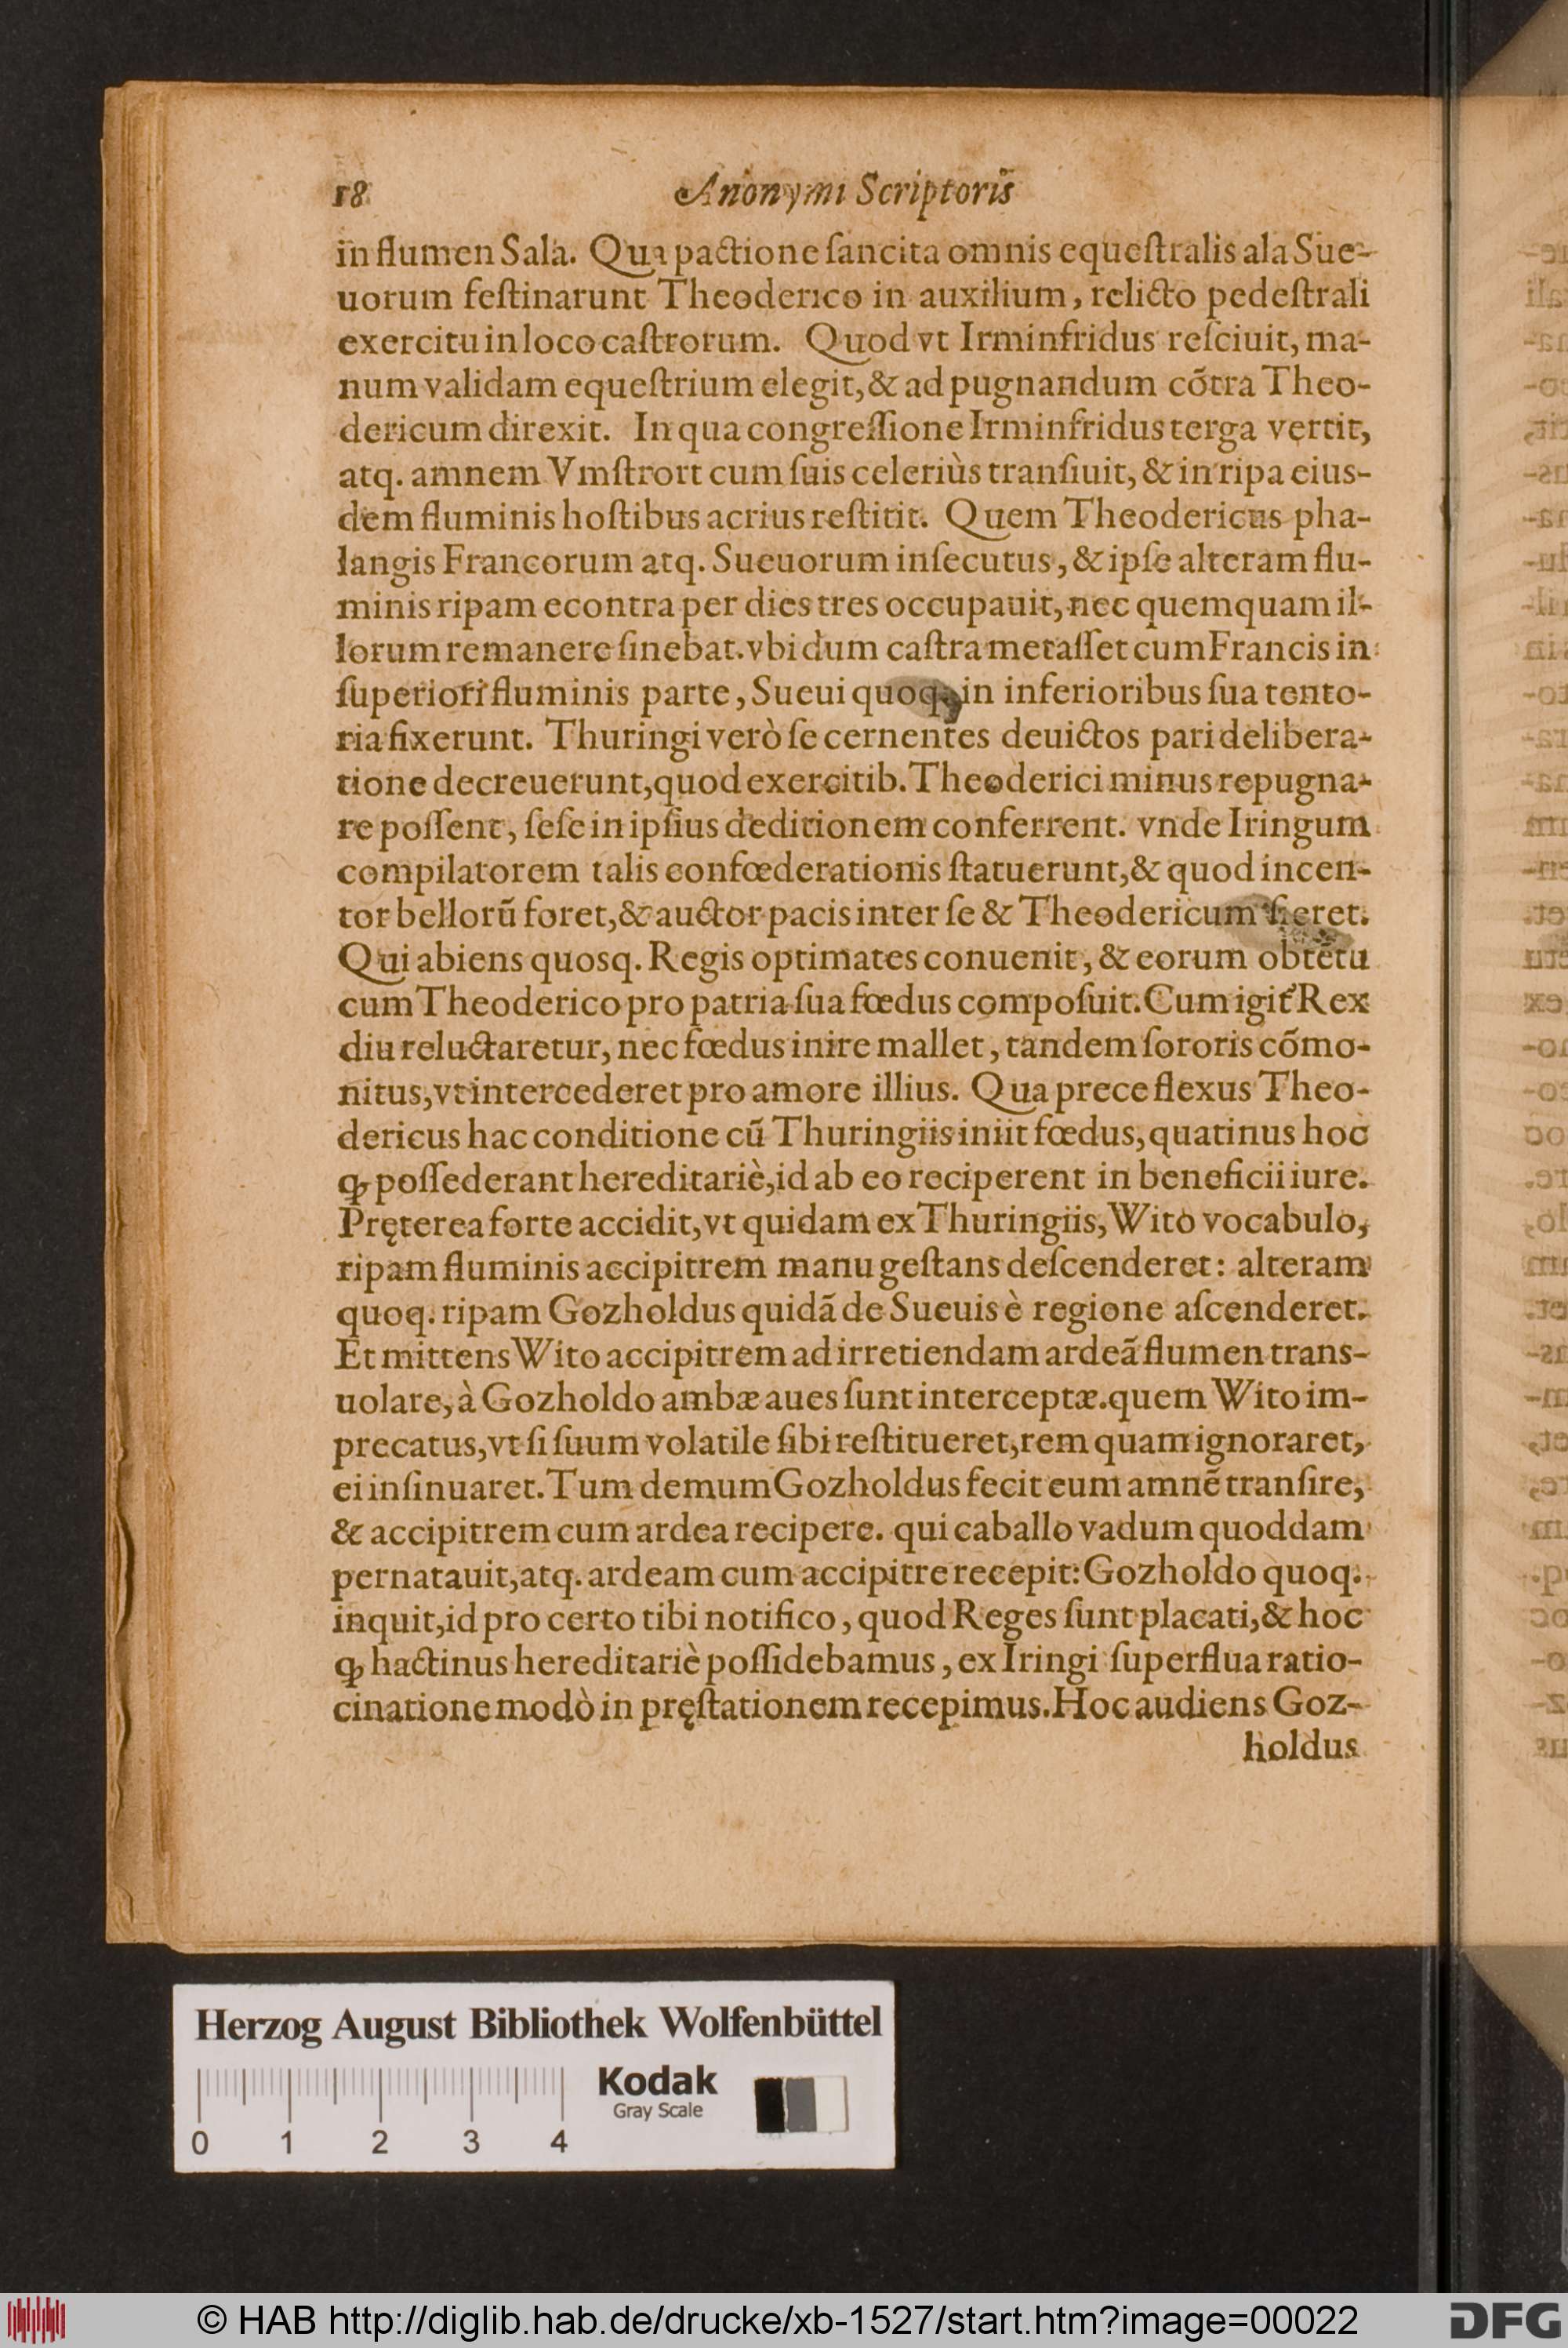 18 Anonymi Scriptoris
in flumen Sala. Qua pactione ſancita omnis equeſtralis ala Sue-
uorum feſtinarunt Theoderico in auxilium, relicto pedeſtrali
exercitu in loco caſtrorum. Quod vt Irminfridus reſciuit, ma-
num validam equeſtrium elegit, & ad pugnandum cõtra Theo-
dericum direxit. In qua congreſſione Irminfridus terga vertit,
atq. amnem Vmſtrort cum ſuis celeriùs tranſiuit, & in ripa eius-
dem fluminis hoſtibus acrius reſtitit. Quem Theodericus pha-
langis Francorum atq. Sueuorum inſecutus, & ipſe alteram flu-
minis ripam econtra per dies tres occupauit, nec quemquam il-
lorum remanere ſinebat. vbi dum caſtra metaſſet cum Francis in
ſuperiori fluminis parte, Sueui quoq; in inferioribus ſua tento-
ria fixerunt. Thuringi verò ſe cernentes deuictos pari delibera-
tione decreuerunt, quod exercitib. Theoderici minus repugna-
re poſſent, ſeſe in ipſius deditionem conferrent. vnde Iringum
compilatorem talis confœderationis ſtatuerunt, & quod incen-
tor bellorũ foret, & auctor pacis inter ſe & Theodericum fieret.
Qui abiens quosq. Regis optimates conuenit, & eorum obtẽtu
cum Theoderico pro patria ſua fœdus compoſuit. Cum igit᷑ Rex
diu reluctaretur, nec fœdus inire mallet, tandem ſororis cõmo-
nitus, vt intercederet pro amore illius. Qua prece flexus Theo-
dericus hac conditione cũ Thuringiis iniit fœdus, quatinus hoc
ꝙ poſſederant hereditariè, id ab eo reciperent in beneficii iure.
Pręterea forte accidit, vt quidam ex Thuringiis, Wito vocabulo,
ripam fluminis accipitrem manu geſtans deſcenderet: alteram
quoq. ripam Gozholdus quidã de Sueuis è regione aſcenderet.
Et mittens Wito accipitrem ad irretiendam ardeã flumen trans-
uolare, à Gozholdo ambæ aues ſunt interceptæ. quem Wito im-
precatus, vt ſi ſuum volatile ſibi reſtitueret, rem quam ignoraret,
ei inſinuaret. Tum demum Gozholdus fecit eum amnẽ tranſire,
& accipitrem cum ardea recipere. qui caballo vadum quoddam
pernatauit, atq. ardeam cum accipitre recepit: Gozholdo quoq.
inquit, id pro certo tibi notifico, quod Reges ſunt placati, & hoc
ꝙ hactinus hereditariè poſſidebamus, ex Iringi ſuperflua ratio-
cinatione modò in pręſtationem recepimus. Hoc audiens Goz-
holdus
Herzog August Bibliothek Wolfenbüttel
Kodak
Gray Scale
0 1 2 3 4
© HAB http://diglib.hab.de/drucke/xb-1527/start.htm?image=00022
DFG